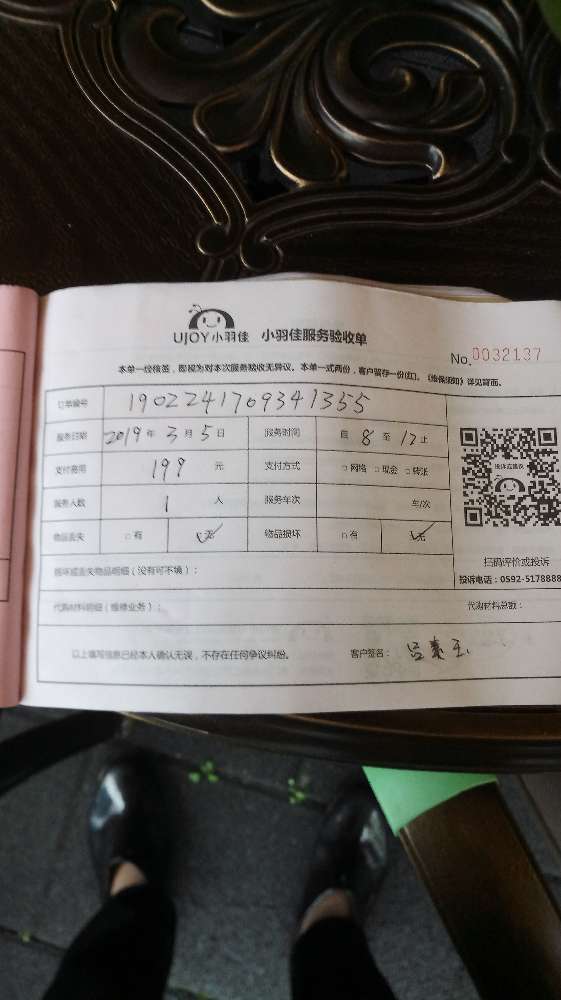 UJOY小羽佳 小羽佳服务验收单
No. 0032137
本单一经核签，即视为对本次服务验收无异议。本单一式两份，客户留存一份(红)。《维保须知》详见背面。
订单编号 1902241709341355
服务日期 2019年3月5日 服务时间 自 8 至 12 止
支付费用 199 元 支付方式 □网络 □现金 □转账
服务人数 1 人 服务车次 车/次
物品丢失 □有 无 物品损坏 □有 无
损坏或丢失物品明细（没有可不填）：
代购材料明细（维修业务）： 代购材料总数：
以上填写信息已经本人确认无误，不存在任何争议纠纷。 客户签名：吕素玉
投诉或建议
扫码评价或投诉
投诉电话：0592-5178888